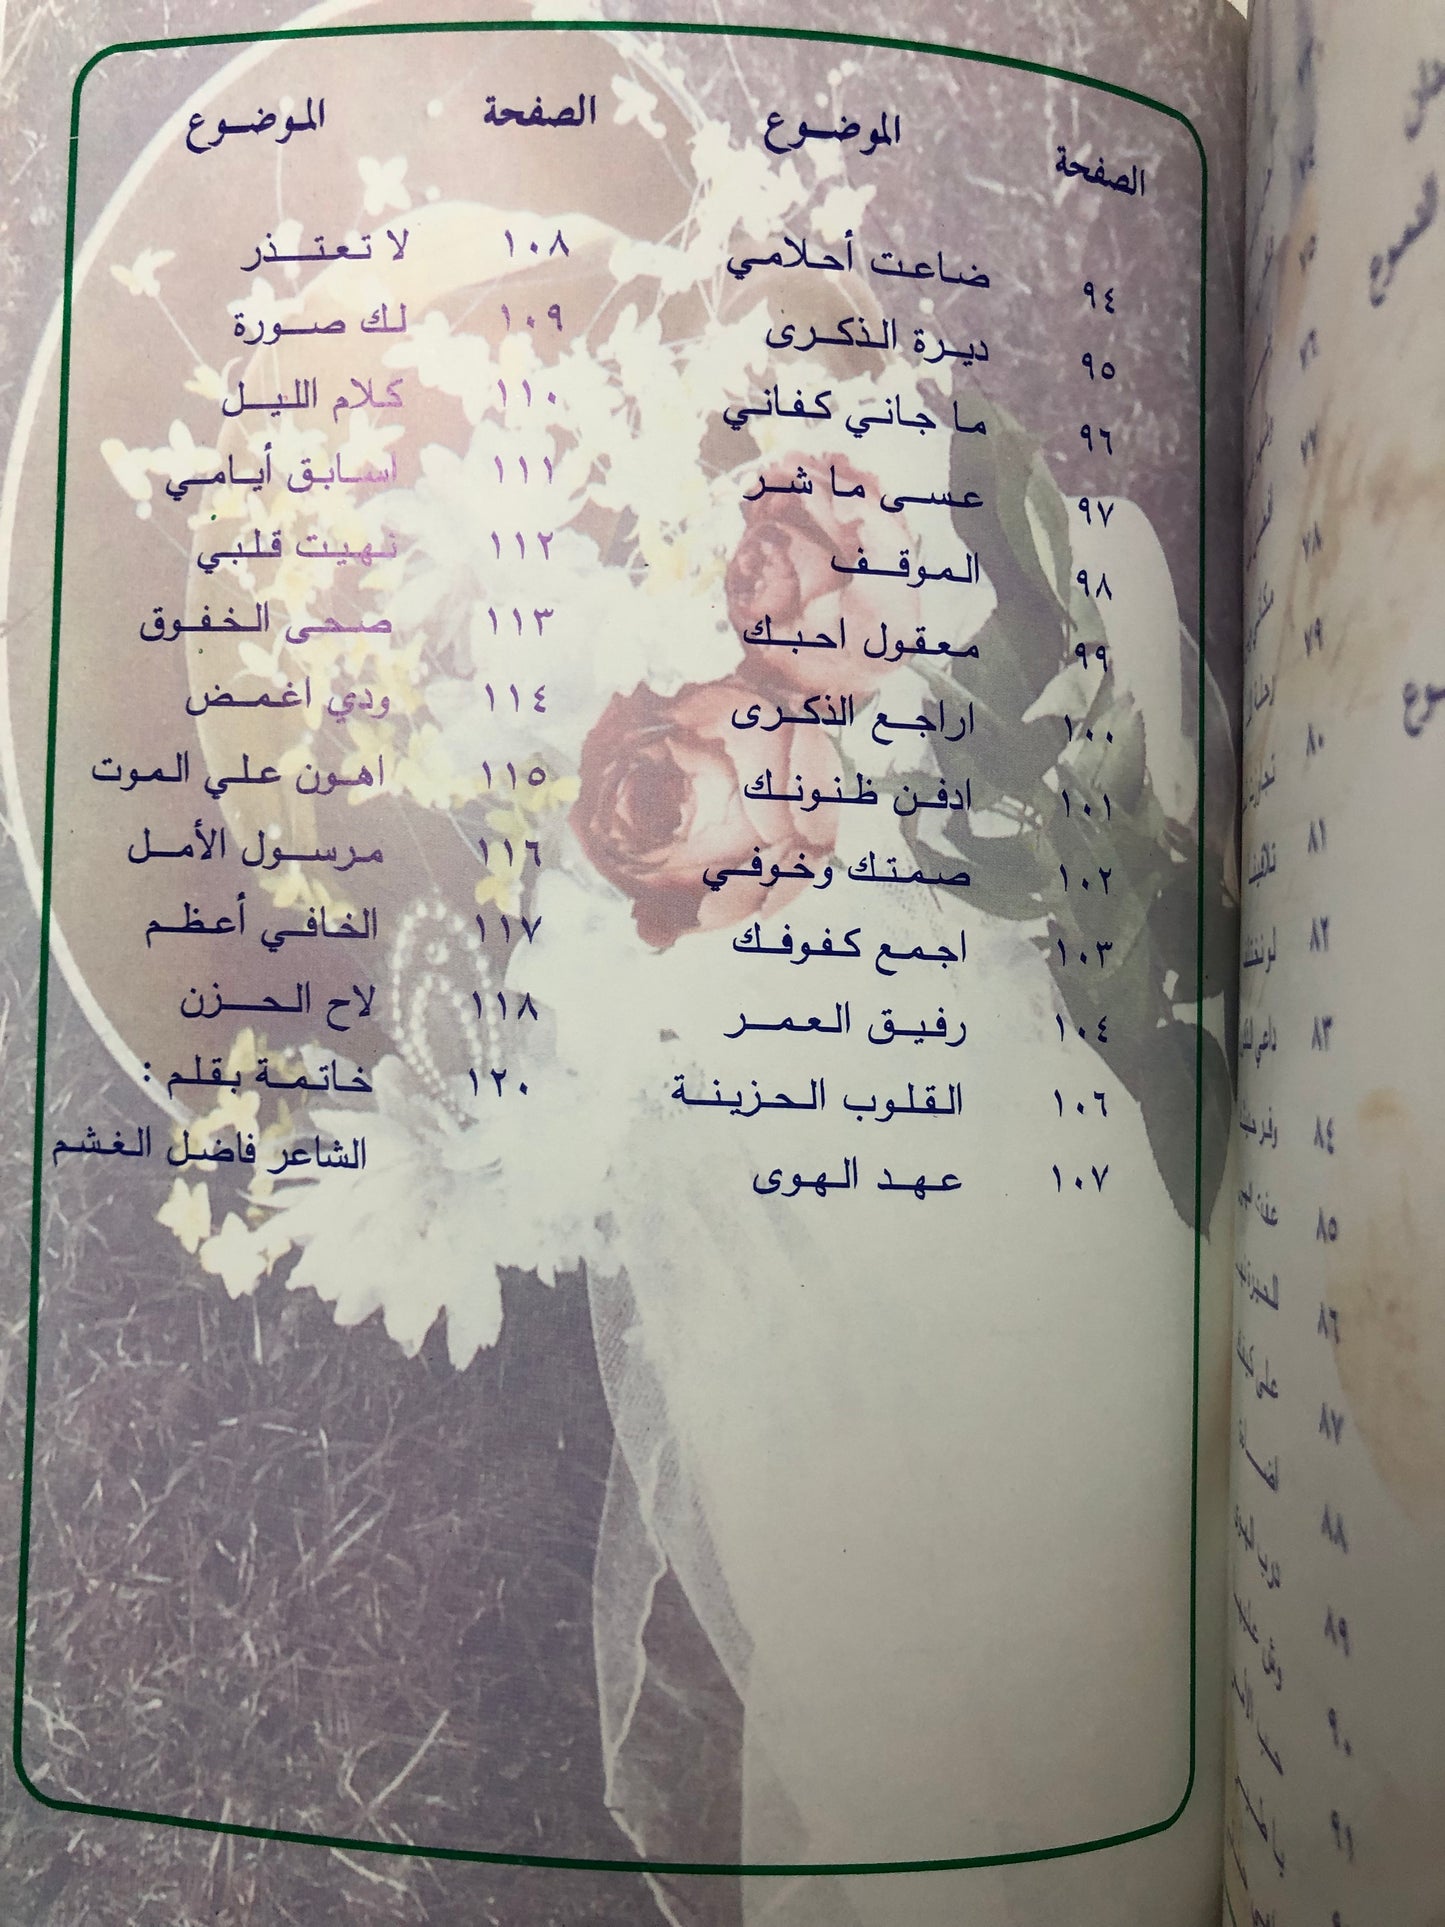 الصفحة الموضوع
٩٤ ضاعت أحلامي
٩٥ ديرة الذكرى
٩٦ ما جاني كفاني
٩٧ عسى ما شر
٩٨ الموقف
٩٩ معقول احبك
١٠٠ اراجع الذكرى
١٠١ ادفن ظنونك
١٠٢ صمتك وخوفي
١٠٣ اجمع كفوفك
١٠٤ رفيق العمر
١٠٦ القلوب الحزينة
١٠٧ عهد الهوى
الصفحة الموضوع
١٠٨ لا تعتذر
١٠٩ لك صورة
١١٠ كلام الليل
١١١ اسابق أيامي
١١٢ نهيت قلبي
١١٣ صحى الخفوق
١١٤ ودي اغمض
١١٥ اهون علي الموت
١١٦ مرسول الأمل
١١٧ الخافي أعظم
١١٨ لاح الحزن
١٢٠ خاتمة بقلم :
الشاعر فاضل الغشم
٧٦
٧٧
٧٨
٧٩
٨٠
٨١
٨٢
٨٣
٨٤
٨٥
٨٦
٨٧
٨٨
٨٩
٩٠
٩١